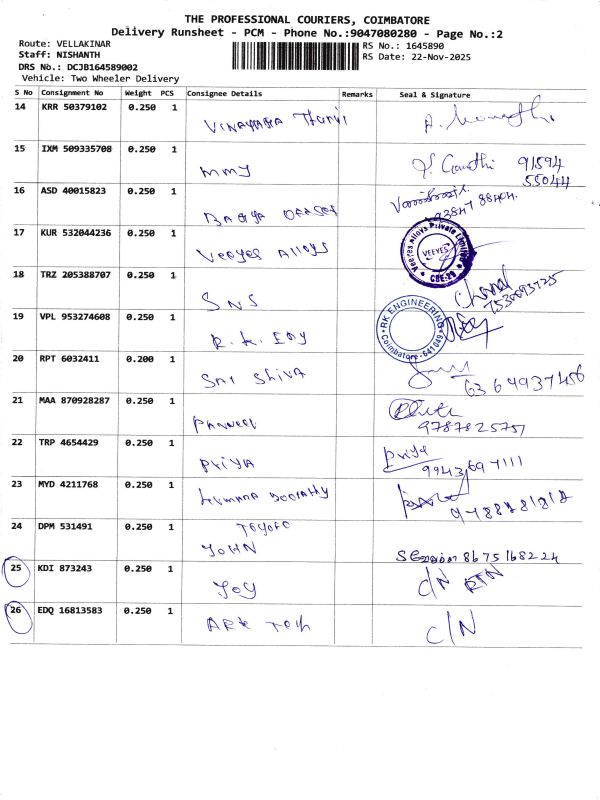 THE PROFESSIONAL COURIERS, COIMBATORE
Delivery Runsheet - PCM - Phone No.:9047080280 - Page No.:2
Route: VELLAKINAR
RS No.: 1645890
Staff: NISHANTH
RS Date: 22-Nov-2025
DRS No.: DCJB164589002
Vehicle: Two Wheeler Delivery
S No Consignment No Weight PCS Consignee Details Remarks Seal & Signature
14 KRR 50379102 0.250 1
15 IXM 509335708 0.250 1
mmy
91594
55044
16 ASD 40015823 0.250 1
17 KUR 532044236 0.250 1
Veeyes Alloys
Veeyes Alloys Private Limited
VEEYES
CBE-29
18 TRZ 205388707 0.250 1
SNS
19 VPL 953274608 0.250 1
R.K. Eng
RK ENGINEERING
Coimbatore-641049
20 RPT 6032411 0.200 1
SAI ShivA
6364937456
21 MAA 870928287 0.250 1
Praveen
9787825757
22 TRP 4654429 0.250 1
PRIYA
Priya
9943697111
23 MYD 4211768 0.250 1
24 DPM 531491 0.250 1
JOHN
8675168224
25 KDI 873243 0.250 1
JOY
C/N RTN
26 EDQ 16813583 0.250 1
ARK Tech
C/N